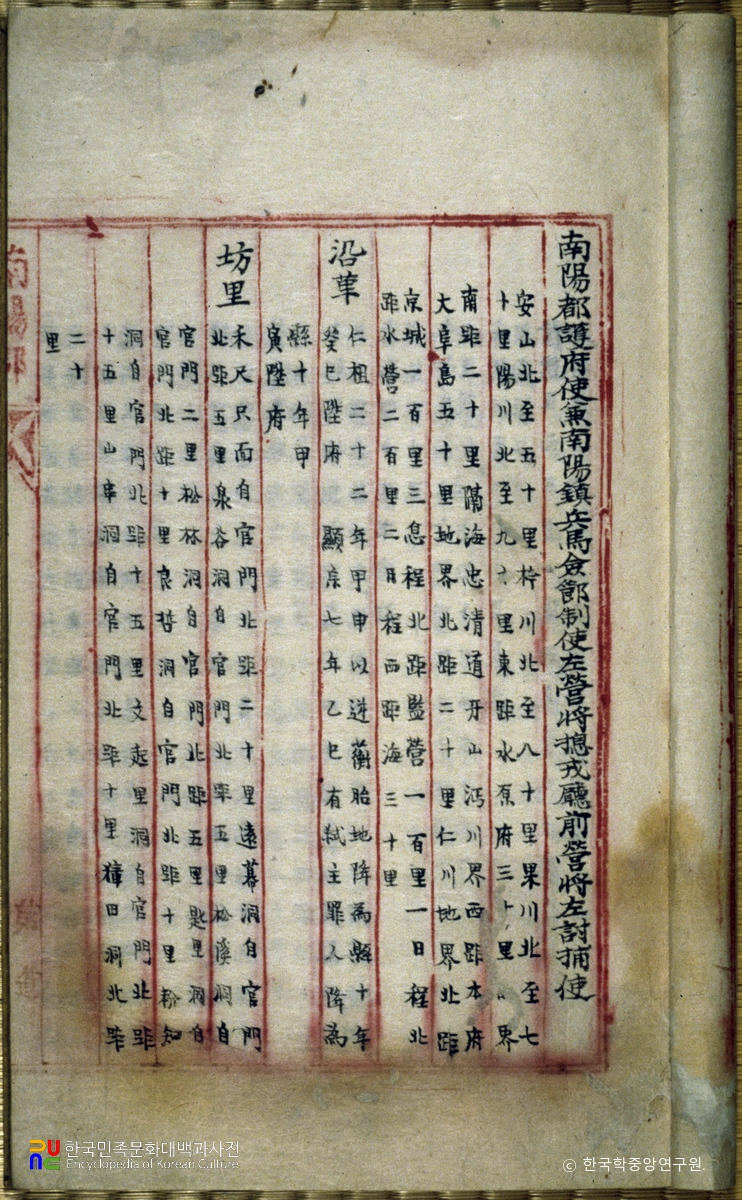 南陽都護府使兼南陽鎮兵馬僉節制使左營將摠戎廳前營將左討捕使
安山北至五十里衿川北至八十里果川北至七
十里陽川北至九十里東距水原府三十里界
南距二十里隔海忠清道牙山沔川界西距本府
大阜島五十里地界北距二十里仁川地界北距
京城一百里三息程北距監營一百里一日程北
距水營二百里二日程西距海三十里
沿革
仁祖二十二年甲申以逆蘅胎地降為縣十年
癸巳陞府 顯宗七年乙巳有弑主罪人降為
縣十年甲
寅陞府
坊里
禾尺只面自官門北距二十里遠幕洞自官門
北距五里泉谷洞自官門北距五里松溪洞自
官門二里松林洞自官門北距五里匙里洞自
官門北距十里良哲洞自官門北距十里粉知
洞自官門北距十五里文起里洞自官門北距
十五里山串洞自官門北距十里獐田洞北距
二十
里
南陽
한국민족문화대백과사전
Encyclopedia of Korean Culture
© 한국학중앙연구원